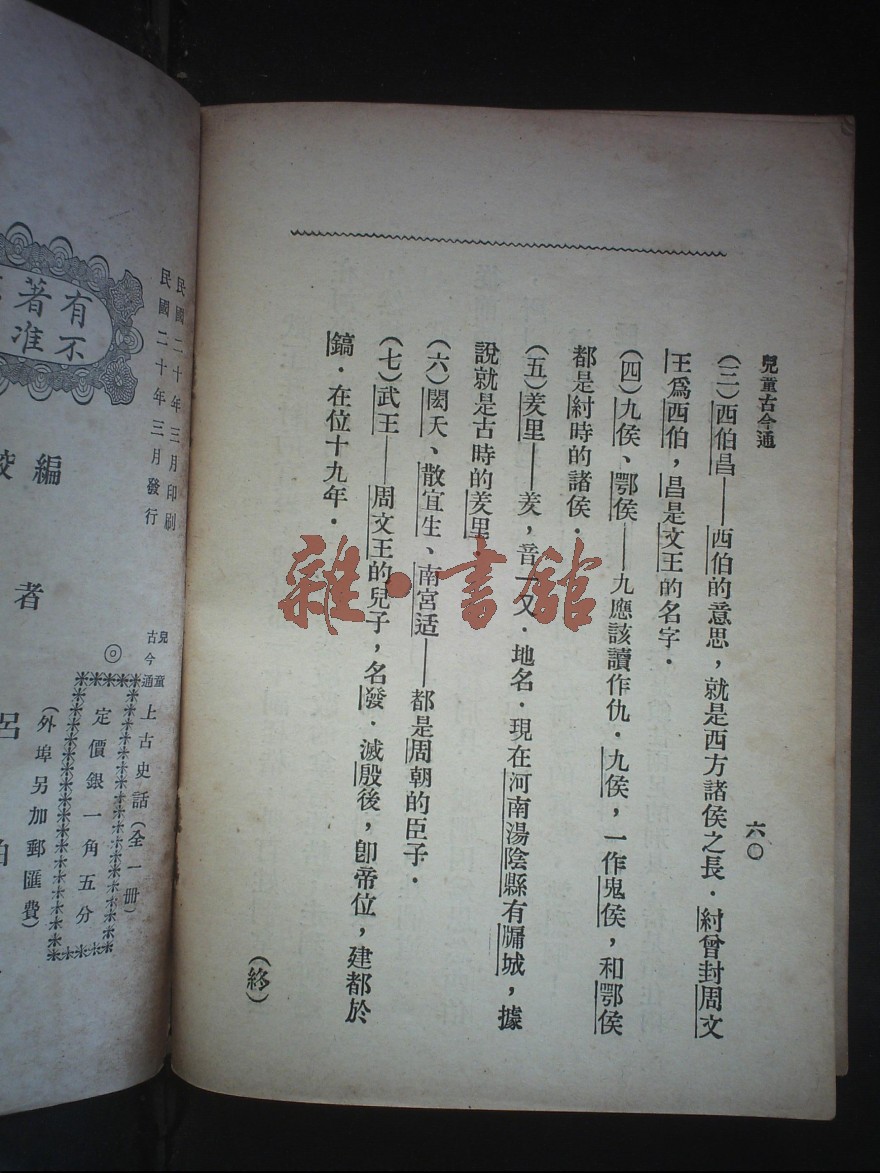 兒童古今通
六〇
（三）西伯昌——西伯的意思，就是西方諸侯之長．紂曾封周文
王爲西伯，昌是文王的名字．
（四）九侯、鄂侯——九應該讀作仇．九侯，一作鬼侯，和鄂侯
都是紂時的諸侯．
（五）羑里——羑，音一又．地名．現在河南湯陰縣有牖城，據
說就是古時的羑里．
（六）閎夭、散宜生、南宮适——都是周朝的臣子．
（七）武王——周文王的兒子，名發．滅殷後，卽帝位，建都於
鎬．在位十九年．
（終）
雜·書館
民國二十年三月印刷
民國二十年三月發行
有著
不准
編
校
者
呂
伯
兒童古今通
上古史話（全一册）
◎
定價銀一角五分
（外埠另加郵匯費）